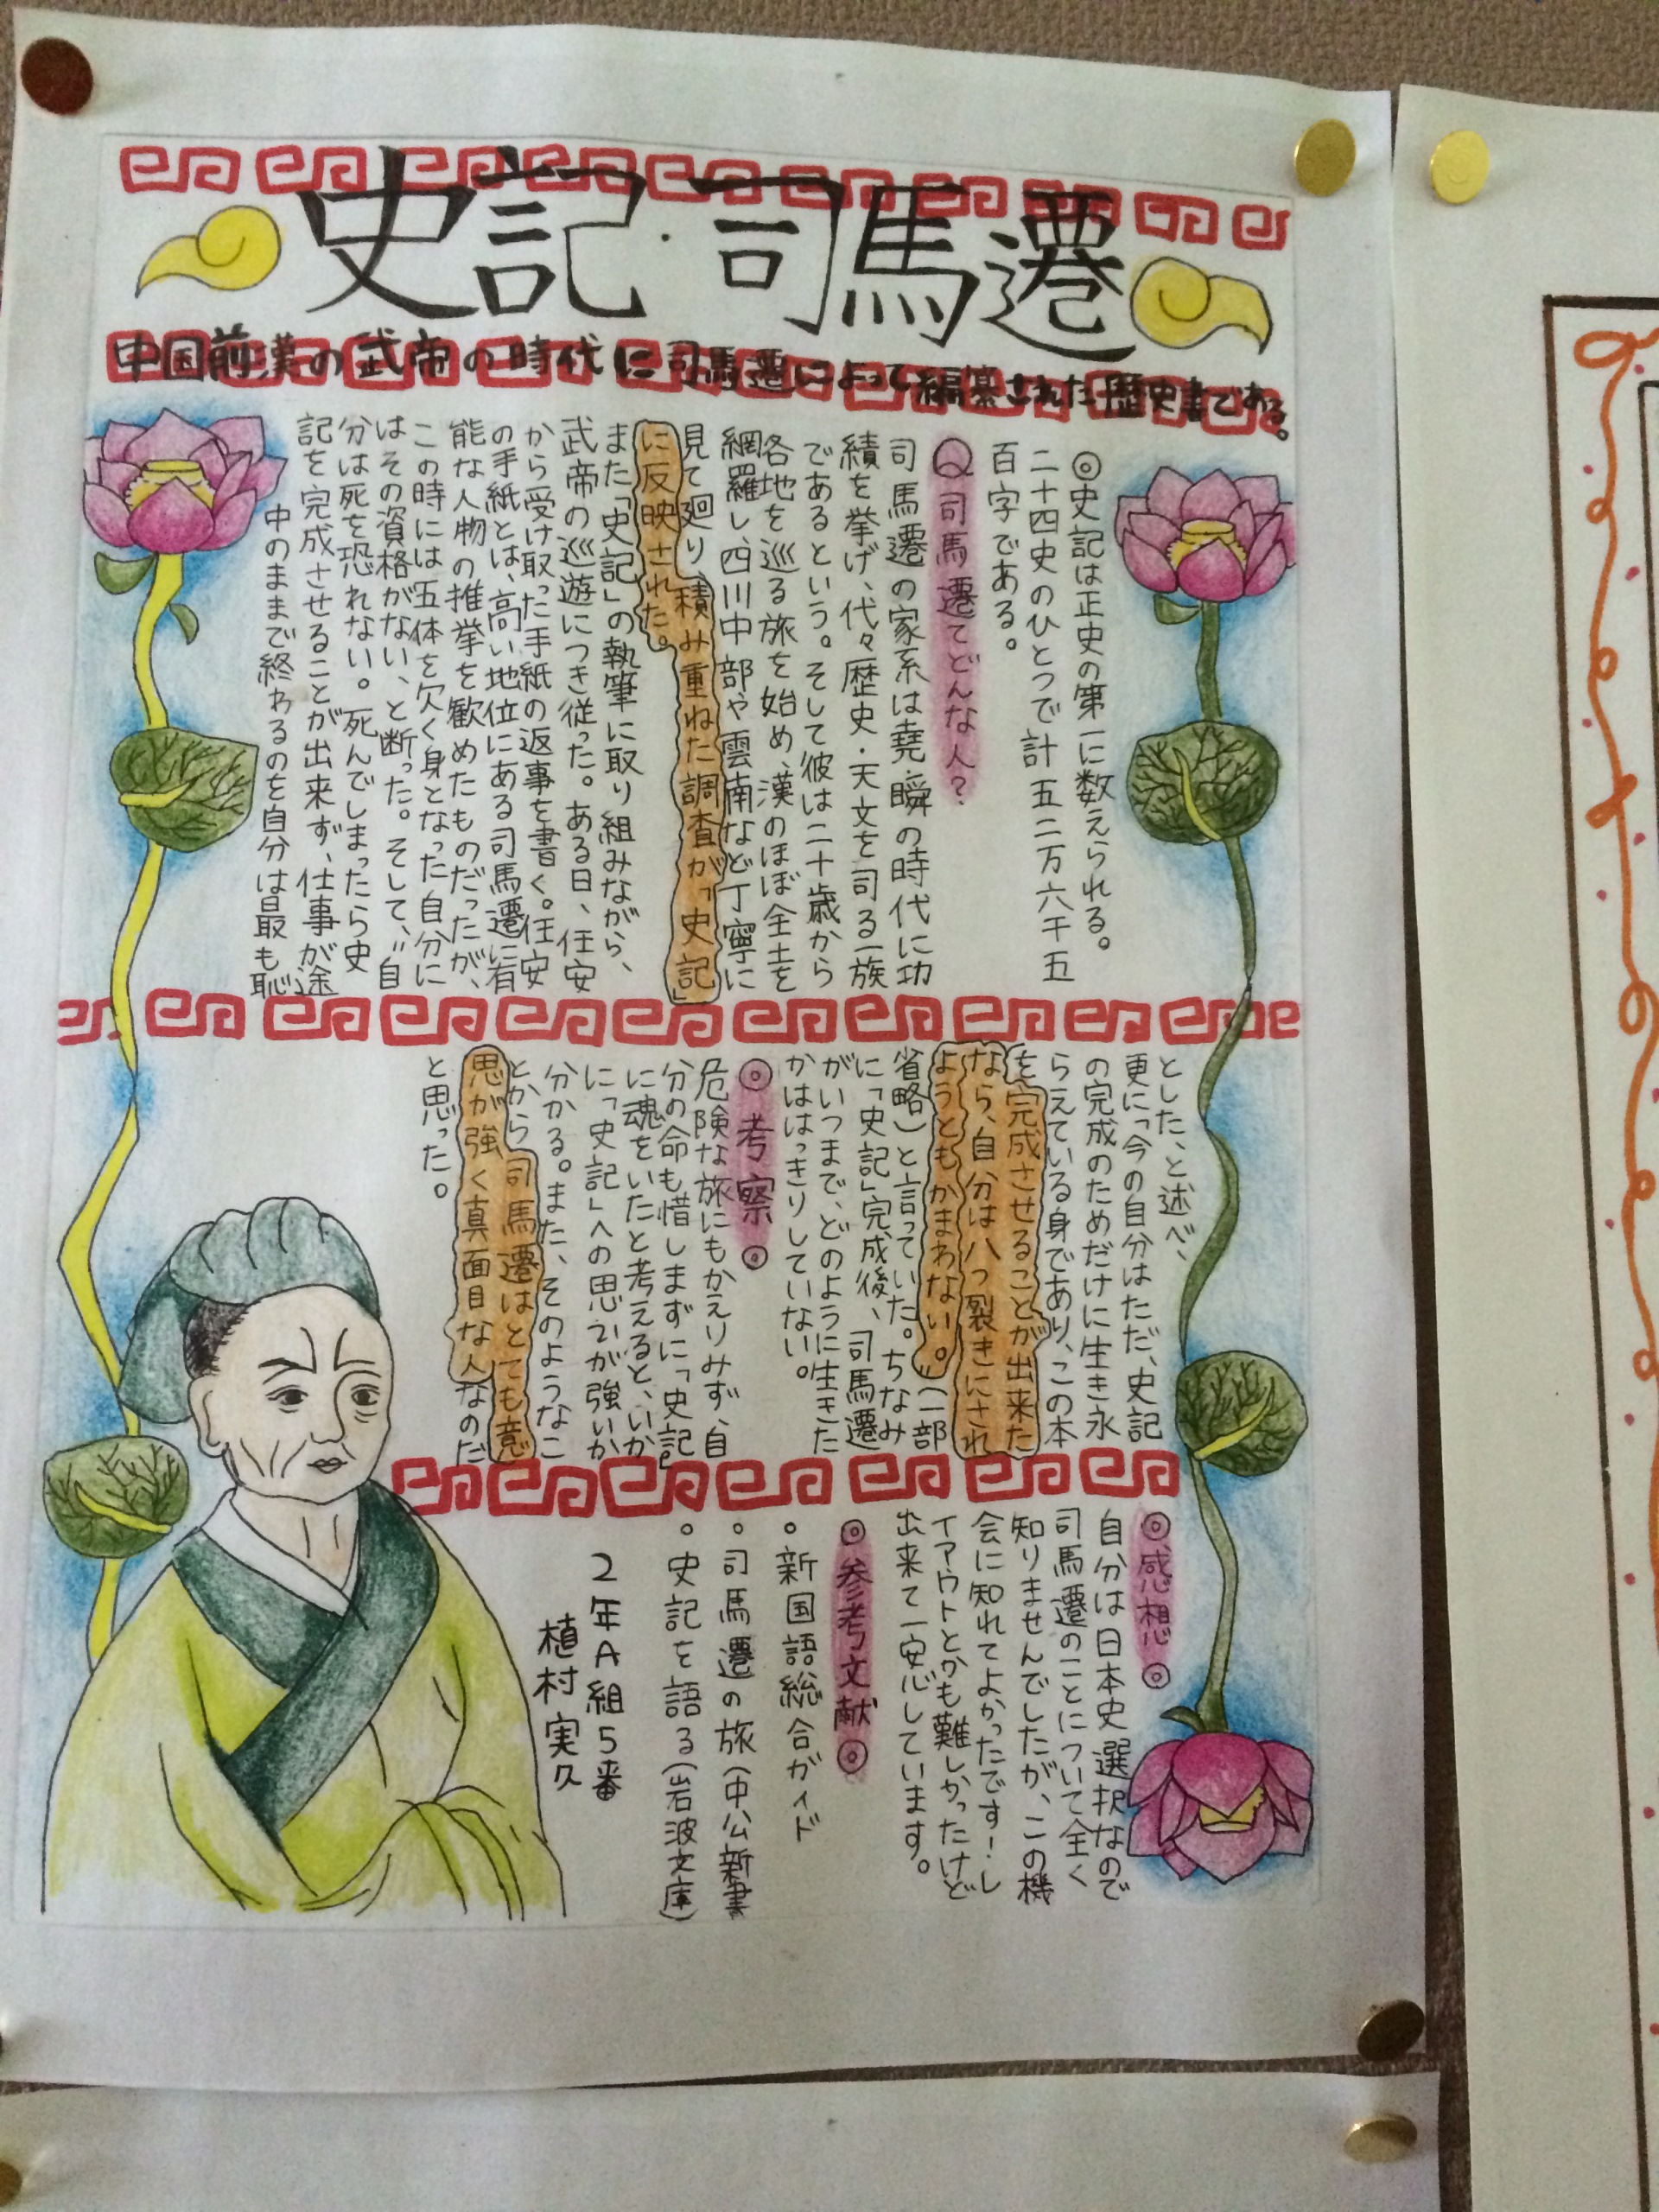 史記・司馬遷
中国前漢の武帝の時代に司馬遷によって編纂された歴史書である。
◎史記は正史の第一に数えられる。
二十四史のひとつで計五二万六千五
百字である。
Q司馬遷てどんな人?
司馬遷の家系は堯・瞬の時代に功
績を挙げ、代々歴史・天文を司る一族
であるという。そして彼は二十歳から
各地を巡る旅を始め、漢のほぼ全土を
網羅し、四川中部や雲南など丁寧に
見て廻り、積み重ねた調査が「史記」
に反映された。
また「史記」の執筆に取り組みながら、
武帝の巡遊につき従った。ある日、任安
から受け取った手紙の返事を書く。任安
の手紙とは、高い地位にある司馬遷に有
能な人物の推挙を歓めたものだったが、
この時には五体を欠く身となった自分に
はその資格がない、と断った。そして、〝自
分は死を恐れない。死んでしまったら史
記を完成させることが出来ず、仕事が途
中のままで終わるのを自分は最も恥
とした、と述べ、
更に「今の自分はただ、史記
の完成のためだけに生き永
らえている身であり、この本
を完成させることが出来た
なら、自分は八つ裂きにされ
ようともかまわない。〟(一部
省略)と言っていた。ちなみ
に「史記」完成後、司馬遷
がいつまで、どのように生きた
かははっきりしていない。
◎考察◎
危険な旅にもかえりみず、自
分の命も惜しまずに「史記」
に魂をいたと考えると、いか
に「史記」への思いが強いか
分かる。また、そのようなこ
とから司馬遷はとても意
思が強く真面目な人なのだ
と思った。
◎感想◎
自分は日本史選択なので
司馬遷のことについて全く
知りませんでしたが、この機
会に知れてよかったです!レ
イアウトとかも難しかったけど
出来て一安心しています。
◎参考文献◎
・新国語総合ガイド
・司馬遷の旅(中公新書
・史記を語る(岩波文庫)
2年A組5番
植村実久